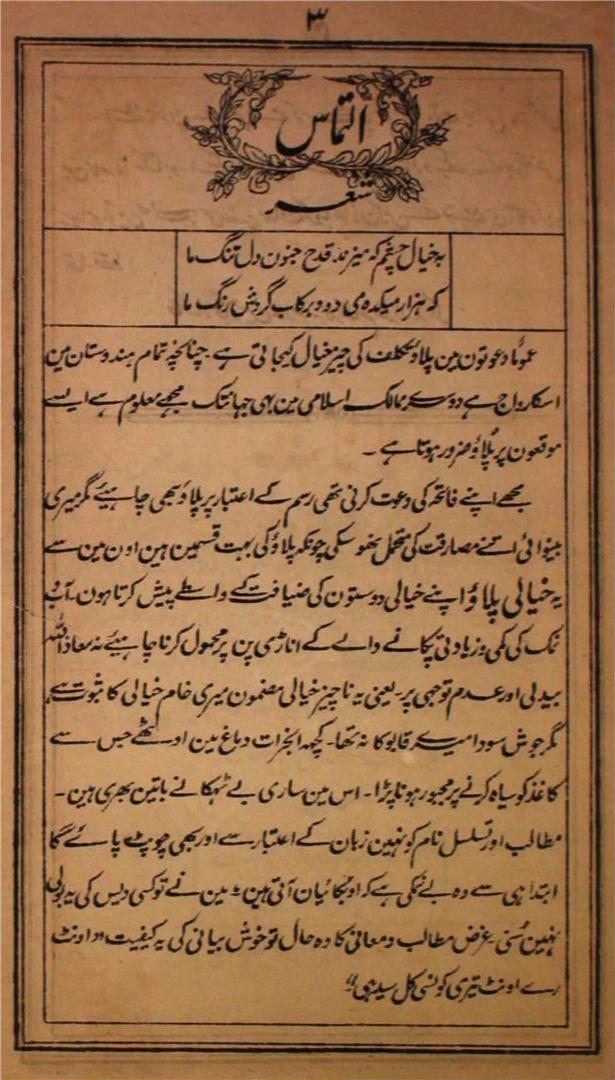 ۳
التماس
شعر
بہ خیال چشم کہ میزند قدح جنون دل تنگ ما
کہ ہزار میکدہ می دود برکاب گردش رنگ ما
عموماً دعوتون مین پلاؤ تکلف کی چیز خیال کیجاتی ہے چنانچہ تمام ہندوستان مین
اسکا رواج ہے دوسرے ممالک اسلامی مین بھی جہانتک مجھے معلوم ہے ایسے
موقعون پر پلاؤ ضرور ہوتا ہے ۔
مجھے اپنے فاتحہ کی دعوت کرنی تھی رسم کے اعتبار پر پلاؤ بھی چاہئیے مگر میری
بینوائی اتنے مصارف کی متحمل نہوسکی چونکہ پلاؤ کی بہت قسمین ہین اون مین سے
یہ خیالی پلاؤ اپنے خیالی دوستون کی ضیافت کے واسطے پیش کرتا ہون۔ آب و
نمک کی کمی و زیادتی پکانے والے کے اناڑی پن پر محمول کرنا چاہئیے نہ معاذ اللہ
بیدلی اور عدم توجہی پر۔ یعنی یہ ناچیز خیالی مضمون میری خام خیالی کا ثبوت ہے
مگر جوش سودا میرے قابو کا نہ تھا۔ کچھ ابخرات دماغ مین اوٹھے جس سے
کاغذ کو سیاہ کرنے پر مجبور ہونا پڑا۔ اس مین ساری بے ٹھکانے باتین بھری ہین ۔
مطالب اور تسلسل نام کو نہین زبان کے اعتبار سے اور بھی چوپٹ پائے گا
ابتدا ہی سے وہ بے تکی ہے کہ اوبکائیان آتی ہین۔ مین نے تو کسی دیس کی یہ بولی
نہین سُنی۔ غرض مطالب و معانی کا وہ حال تو خوش بیانی کی یہ کیفیت "اونٹ
رے اونٹ تیری کونسی کل سیدہی"